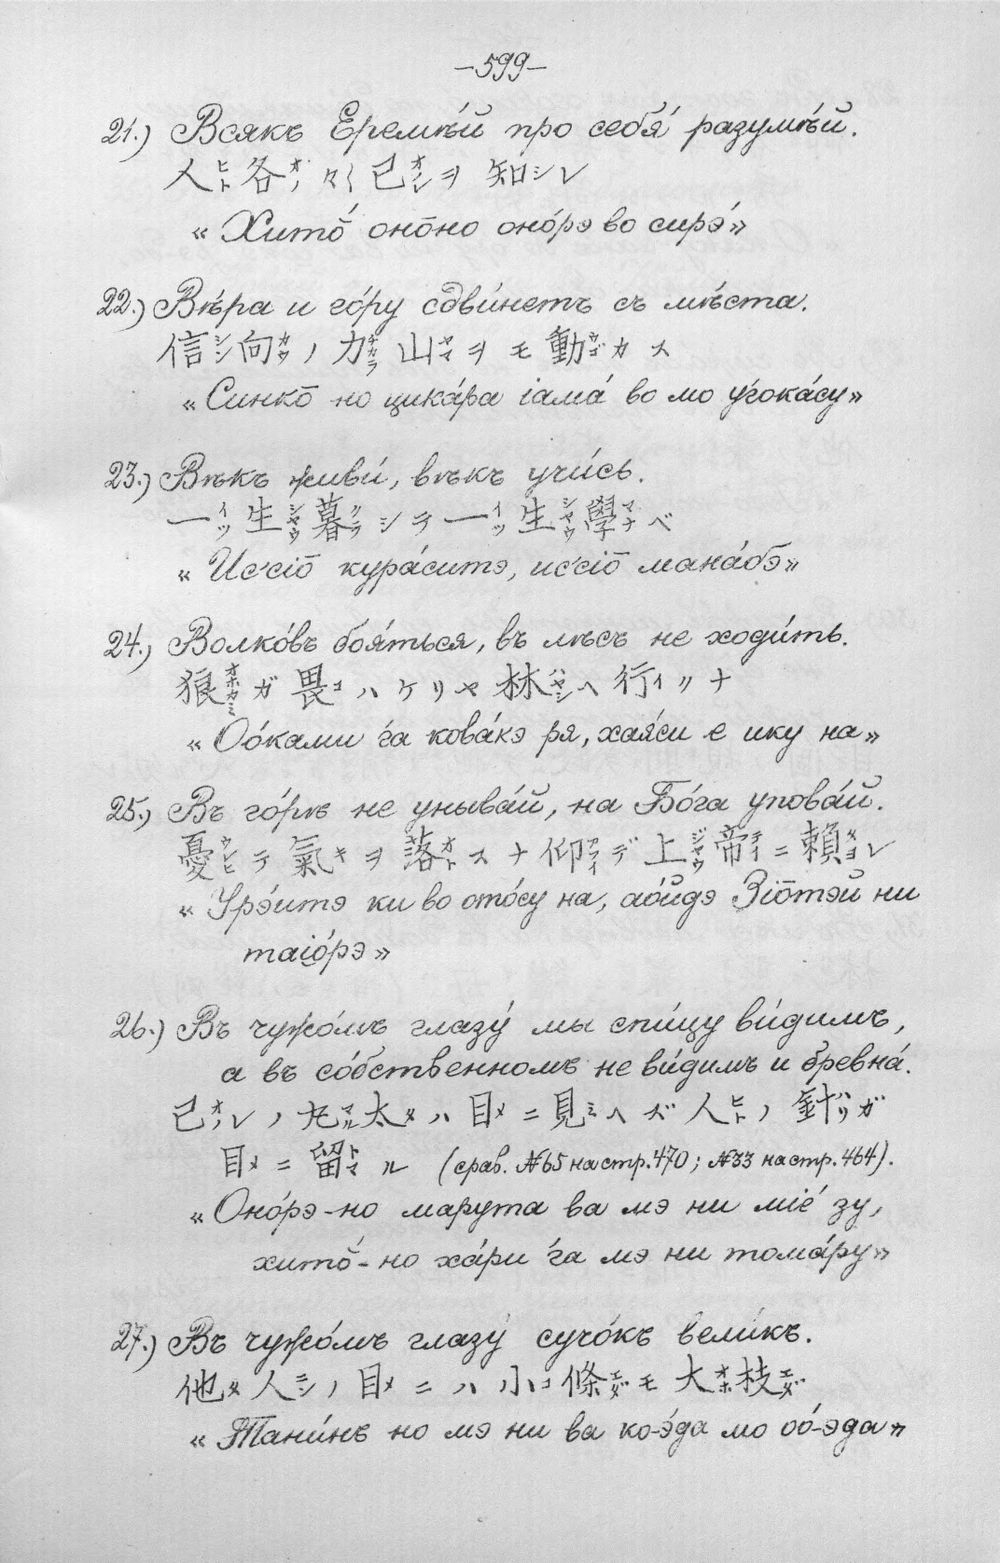 –599–
21.) Всякъ Еремѣ́й про себя́ разумѣ́й.
人ヒト各オノ々〱己オノレヲ 知シレ
«Хито̄́ оно̄но оно́рэ во сирэ́»
22.) Вѣ́ра и го́ру сдви́нетъ съ мѣ́ста.
信シン向カウノ力チカラ山ヤマヲモ動ウゴカス
«Синко̄ но цика́ра іама́ во мо у́гока́су»
23.) Вѣкъ живи́, вѣкъ учи́сь.
一イツ生シヤウ暮クラシテ一イツ生シヤウ學マナベ
«Ис’сіо̄ кура́ситэ, ис’сіо̄ мана́бэ»
24.) Волко́въ боя́ться, въ лѣсъ не ходи́ть.
狼オホカミガ畏コハケリヤ林ハヤシヘ行イクナ
«Оо́ками га кова́кэ ря, хая́си е ику на»
25.) Въ го́рѣ не уныва́й, на Бо́га упова́й.
憂ウレヒテ氣キヲ落オトスナ仰アオイデ上ジヤウ帝テイニ賴タヨレ
«Урэ́итэ ки во ото́су на, ао́йдэ Зіо̄тэй ни
таіо́рэ»
26.) Въ чужо́мъ глазу́ мы спи́цу ви́димъ,
а въ со́бственномъ не ви́димъ и бревна́.
己オノレノ丸マル太タハ目メニ見ミヘズ人ヒトノ針ハリガ
目メニ留トマル (срав. №65 на стр. 470; №33 на стр. 464).
«Оно́рэ-но марута ва мэ ни міе́ зу,
хито̄́-но ха́ри га мэ ни тома́ру»
27.) Въ чужо́мъ глазу́ сучо́къ вели́къ.
他タ人ニンノ目メニハ小コ條エダモ大オホ枝エダ
«Тани́нъ но мэ ни ва ко-э́да мо оо́-эда»